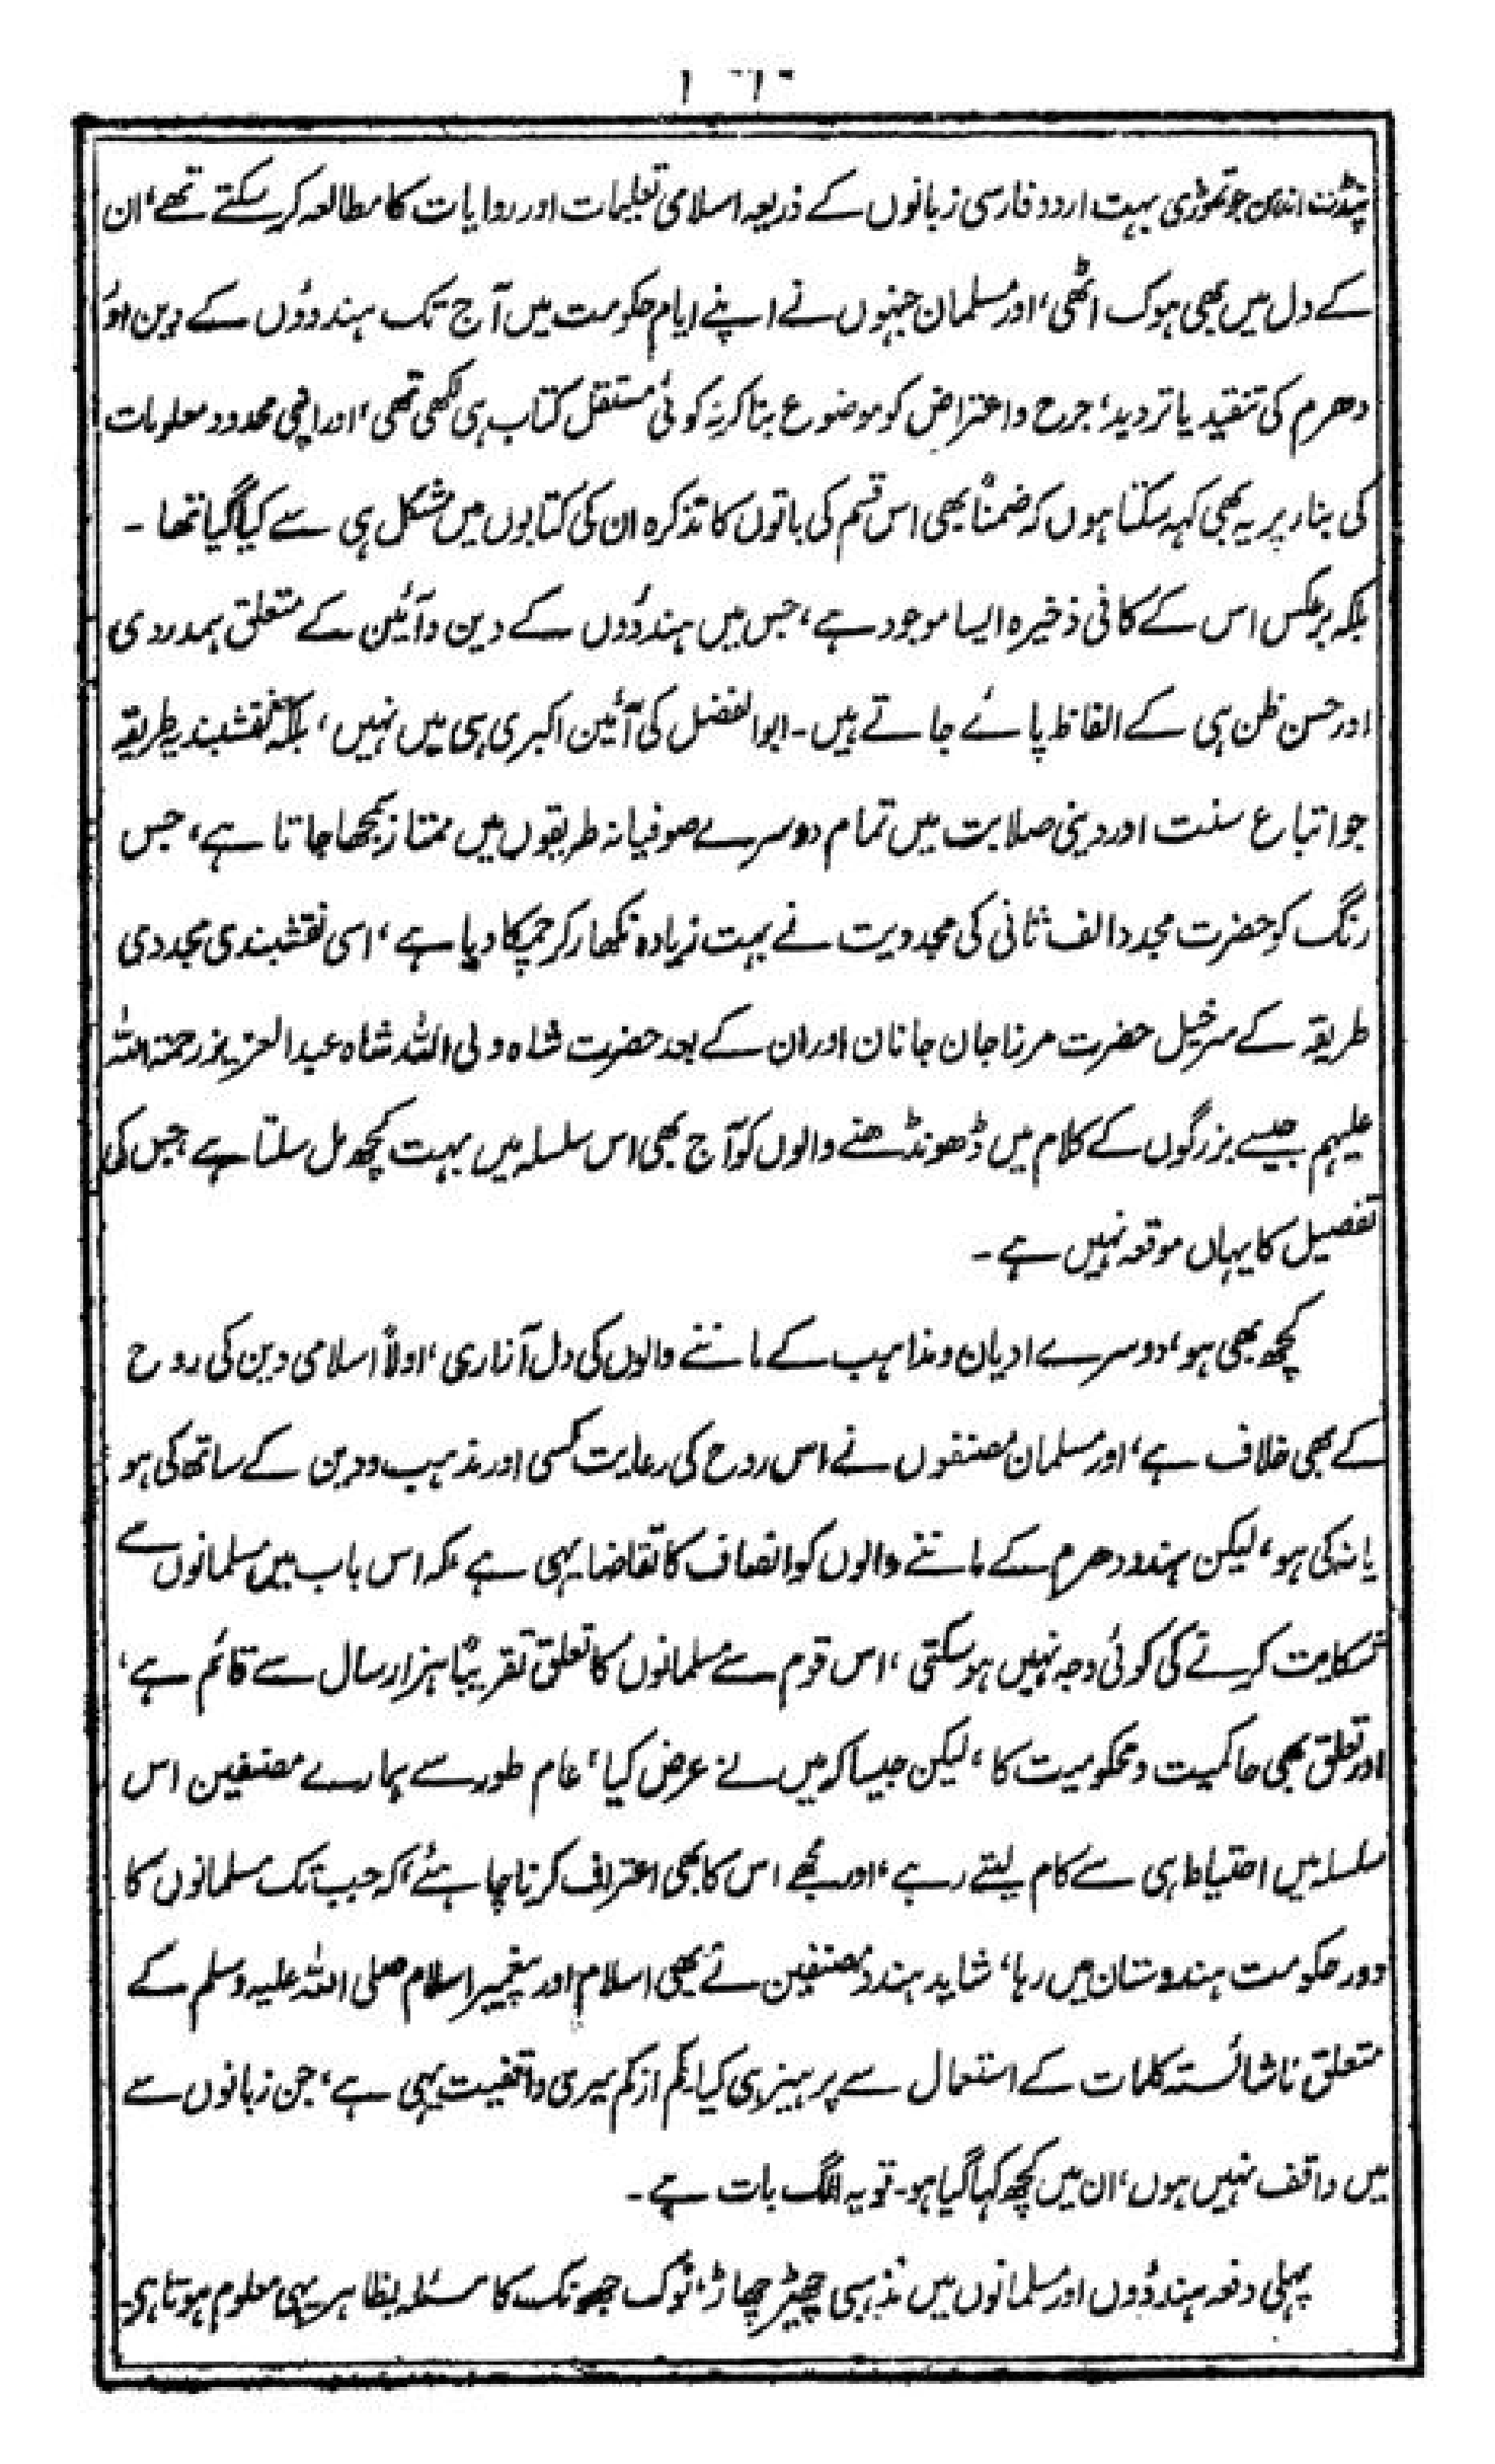 پنڈت اندمن جو تھوڑی بہت اردو فارسی زبانوں کے ذریعہ اسلامی تعلیمات اور روایات کا مطالعہ کر سکتے تھے، ان
کے دل میں بھی ہوک اٹھی، اور مسلمان جنہوں نے اپنے ایام حکومت میں آج تک ہندوؤں کے دین اور
دھرم کی تنقید یا تردید، جرح و اعتراض کو موضوع بنا کر نہ کوئی مستقل کتاب ہی لکھی تھی، اور اپنی محدود معلومات
کی بنار پر یہ بھی کہہ سکتا ہوں کہ ضمناً بھی اس قسم کی باتوں کا تذکرہ ان کی کتابوں میں مشکل ہی سے کیا گیا تھا ۔
بلکہ برعکس اس کے کافی ذخیرہ ایسا موجود ہے، جس میں ہندوؤں کے دین و آئین کے متعلق ہمدردی
اور حسن ظن ہی کے الفاظ پائے جاتے ہیں ۔ ابوالفضل کی آئین اکبری ہی میں نہیں، بلکہ نقشبندیہ طریقہ
جو اتباع سنت اور دینی صلابت میں تمام دوسرے صوفیانہ طریقوں میں ممتاز سمجھا جاتا ہے، جس
رنگ کو حضرت مجدد الف ثانی کی مجددیت نے بہت زیادہ نکھار کر چمکا دیا ہے، اسی نقشبندی مجددی
طریقہ کے سرخیل حضرت مرزا جان جانان اور ان کے بعد حضرت شاہ ولی اللہ شاہ عبدالعزیز رحمۃ اللہ
علیہم جیسے بزرگوں کے کلام میں ڈھونڈھنے والوں کو آج بھی اس سلسلہ میں بہت کچھ مل سکتا ہے، جس کی
تفصیل کا یہاں موقعہ نہیں ہے ۔
کچھ بھی ہو، دوسرے ادیان و مذاہب کے ماننے والوں کی دل آزاری، اولاً اسلامی دین کی روح
کے بھی خلاف ہے، اور مسلمان مصنفوں نے اس روح کی رعایت کسی اور مذہب و دین کے ساتھ کی ہو
یا نہ کی ہو، لیکن ہندو دھرم کے ماننے والوں کو انصاف کا تقاضا یہی ہے کہ اس باب میں مسلمانوں سے
شکایت کرنے کی کوئی وجہ نہیں ہو سکتی، اس قوم سے مسلمانوں کا تعلق تقریباً ہزار سال سے قائم ہے،
اور تعلق بھی حاکمیت و محکومیت کا، لیکن جیسا کہ میں نے عرض کیا، عام طور سے ہمارے مصنفین اس
سلسلہ میں احتیاط ہی سے کام لیتے رہے، اور مجھے اس کا بھی اعتراف کرنا چاہئے، کہ جب تک مسلمانوں کا
دور حکومت ہندوستان میں رہا، شاید ہندو مصنفین نے بھی اسلام اور پیغمبر اسلام صلی اللہ علیہ وسلم کے
متعلق ناشائستہ کلمات کے استعمال سے پرہیز ہی کیا، کم از کم میری واقفیت یہی ہے، جن زبانوں سے
میں واقف نہیں ہوں، ان میں کچھ کہا گیا ہو ۔ تو یہ الگ بات ہے ۔
پہلی دفعہ ہندوؤں اور مسلمانوں میں مذہبی چھیڑ چھاڑ، نوک جھونک کا مسئلہ بظاہر یہی معلوم ہوتا ہی